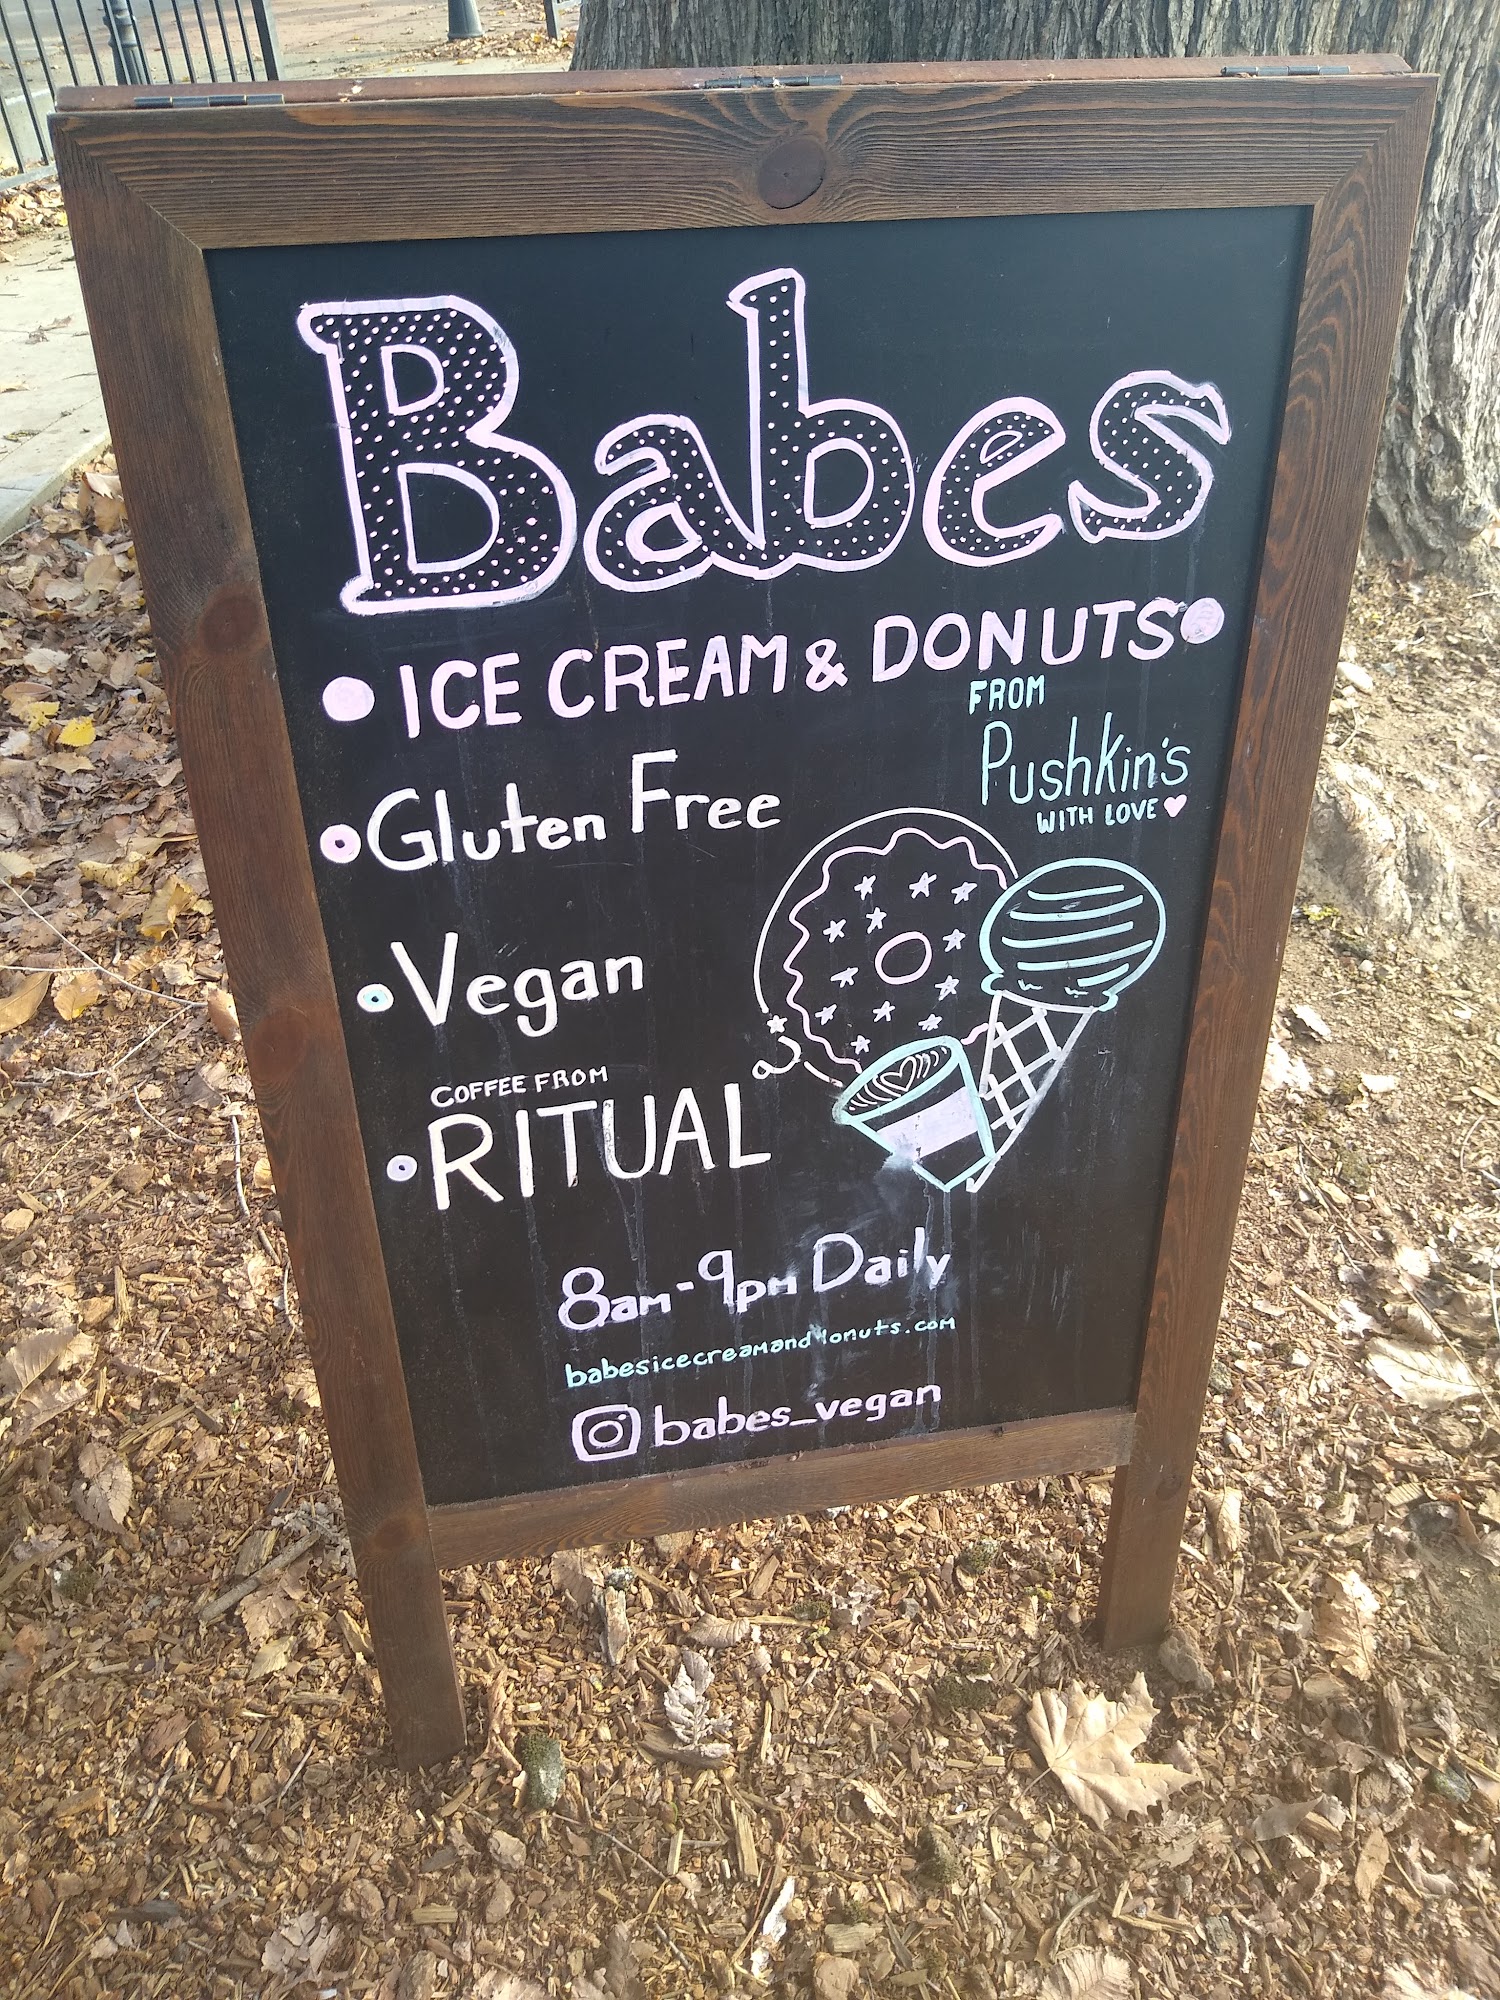 Babes
• ICE CREAM & DONUTS •
FROM
Pushkin's
WITH LOVE ♥
• Gluten Free
• Vegan
COFFEE FROM
• RITUAL
8am-9pm Daily
babesicecreamanddonuts.com
babes_vegan